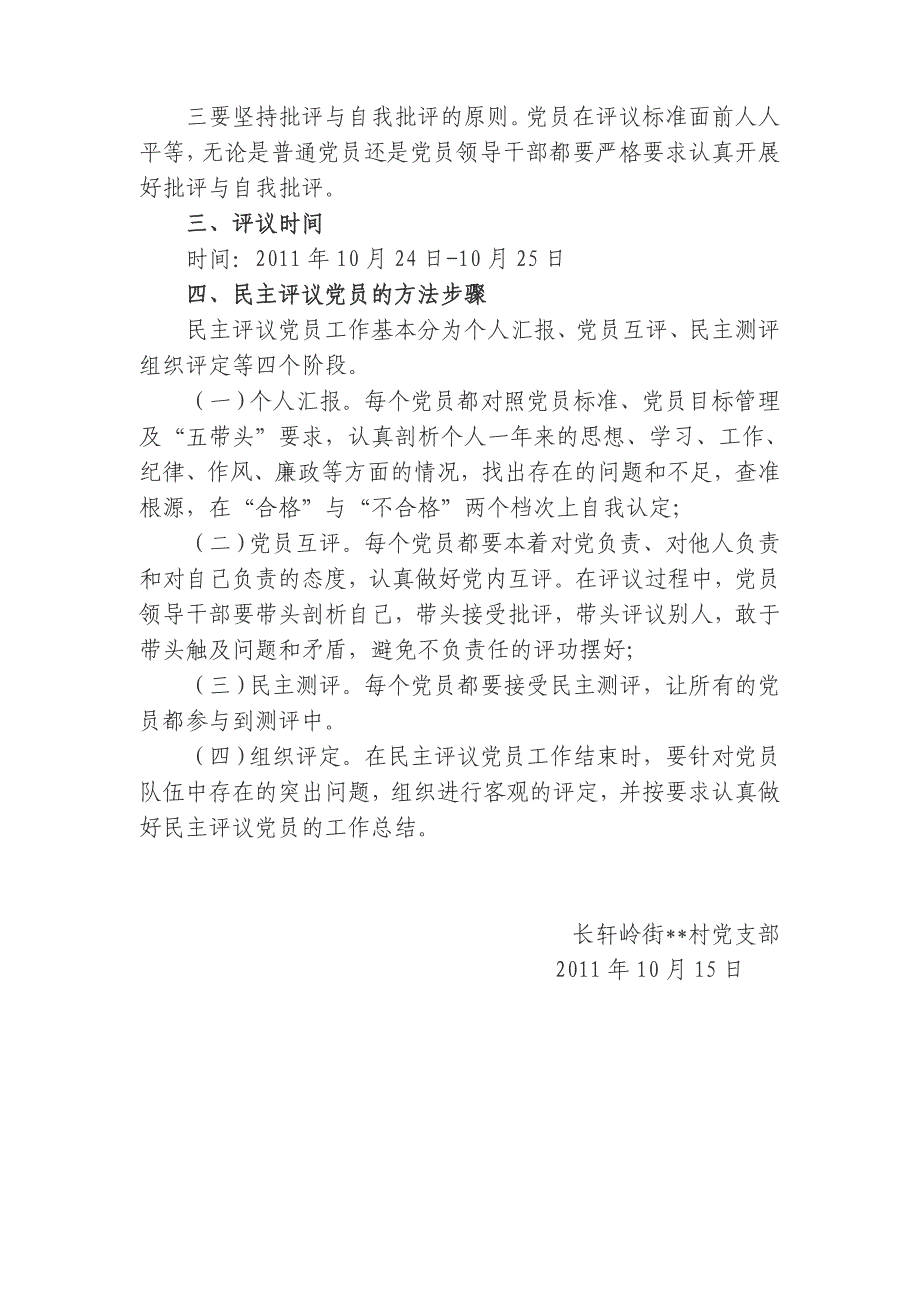 三要坚持批评与自我批评的原则。党员在评议标准面前人人
平等，无论是普通党员还是党员领导干部都要严格要求认真开展
好批评与自我批评。
三、评议时间
时间：2011 年 10 月 24 日-10 月 25 日
四、民主评议党员的方法步骤
民主评议党员工作基本分为个人汇报、党员互评、民主测评
组织评定等四个阶段。
（一）个人汇报。每个党员都对照党员标准、党员目标管理
及“五带头”要求，认真剖析个人一年来的思想、学习、工作、
纪律、作风、廉政等方面的情况，找出存在的问题和不足，查准
根源，在“合格”与“不合格”两个档次上自我认定；
（二）党员互评。每个党员都要本着对党负责、对他人负责
和对自己负责的态度，认真做好党内互评。在评议过程中，党员
领导干部要带头剖析自己，带头接受批评，带头评议别人，敢于
带头触及问题和矛盾，避免不负责任的评功摆好；
（三）民主测评。每个党员都要接受民主测评，让所有的党
员都参与到测评中。
（四）组织评定。在民主评议党员工作结束时，要针对党员
队伍中存在的突出问题，组织进行客观的评定，并按要求认真做
好民主评议党员的工作总结。
长轩岭街**村党支部
2011 年 10 月 15 日